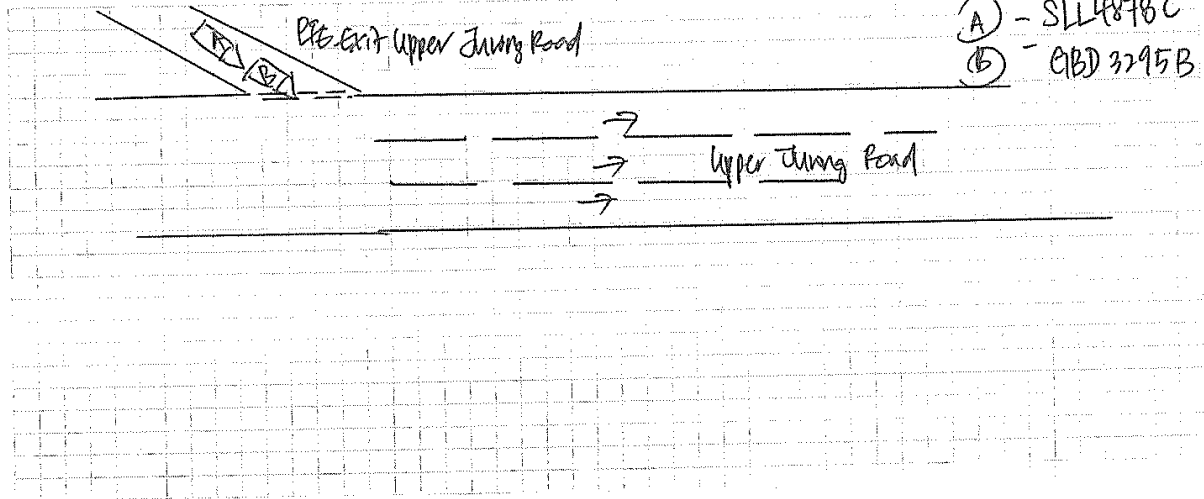 PIE Exit Upper Jurong Road
A - SLL4878C
B - GBD 3295B
A
B
Upper Jurong Road